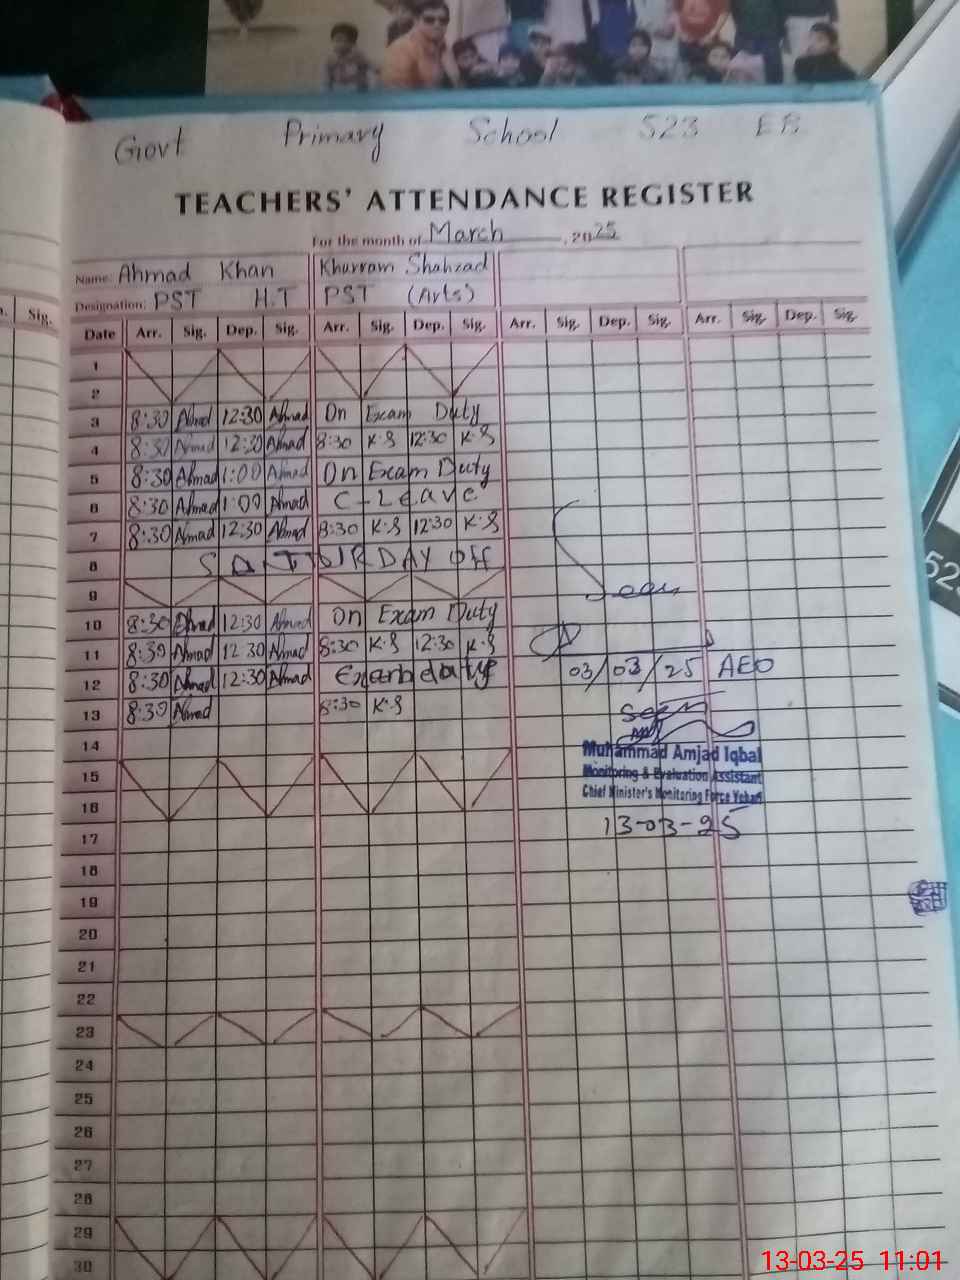 Govt Primary School 523 EB
TEACHERS' ATTENDANCE REGISTER
For the month of March, 2025
Name: Ahmad Khan Khurram Shahzad
Designation: PST H.T PST (Arts)
Sig. Date Arr. Sig. Dep. Sig. Arr. Sig. Dep. Sig. Arr. Sig. Dep. Sig. Arr. Sig. Dep. Sig.
1
2
3 8:30 Ahmad 12:30 Ahmad On Exam Duty
4 8:30 Ahmad 12:30 Ahmad 8:30 K.S 12:30 K.S
5 8:30 Ahmad 1:00 Ahmad On Exam Duty
6 8:30 Ahmad 1:00 Ahmad C-Leave
7 8:30 Ahmad 12:30 Ahmad 8:30 K.S 12:30 K.S
8 SATURDAY Off
9 Seen
10 8:30 Ahmad 12:30 Ahmad On Exam Duty
11 8:30 Ahmad 12:30 Ahmad 8:30 K.S 12:30 K.S
12 8:30 Ahmad 12:30 Ahmad Exam duty 03/03/25 AEO
13 8:30 Ahmad 8:30 K.S Seen
14 Muhammad Amjad Iqbal
15 Monitoring & Evaluation Assistant
16 Chief Minister's Monitoring Force Vehari
17 13-03-25
18
19
20
21
22
23
24
25
26
27
28
29
30
52
13-03-25 11:01